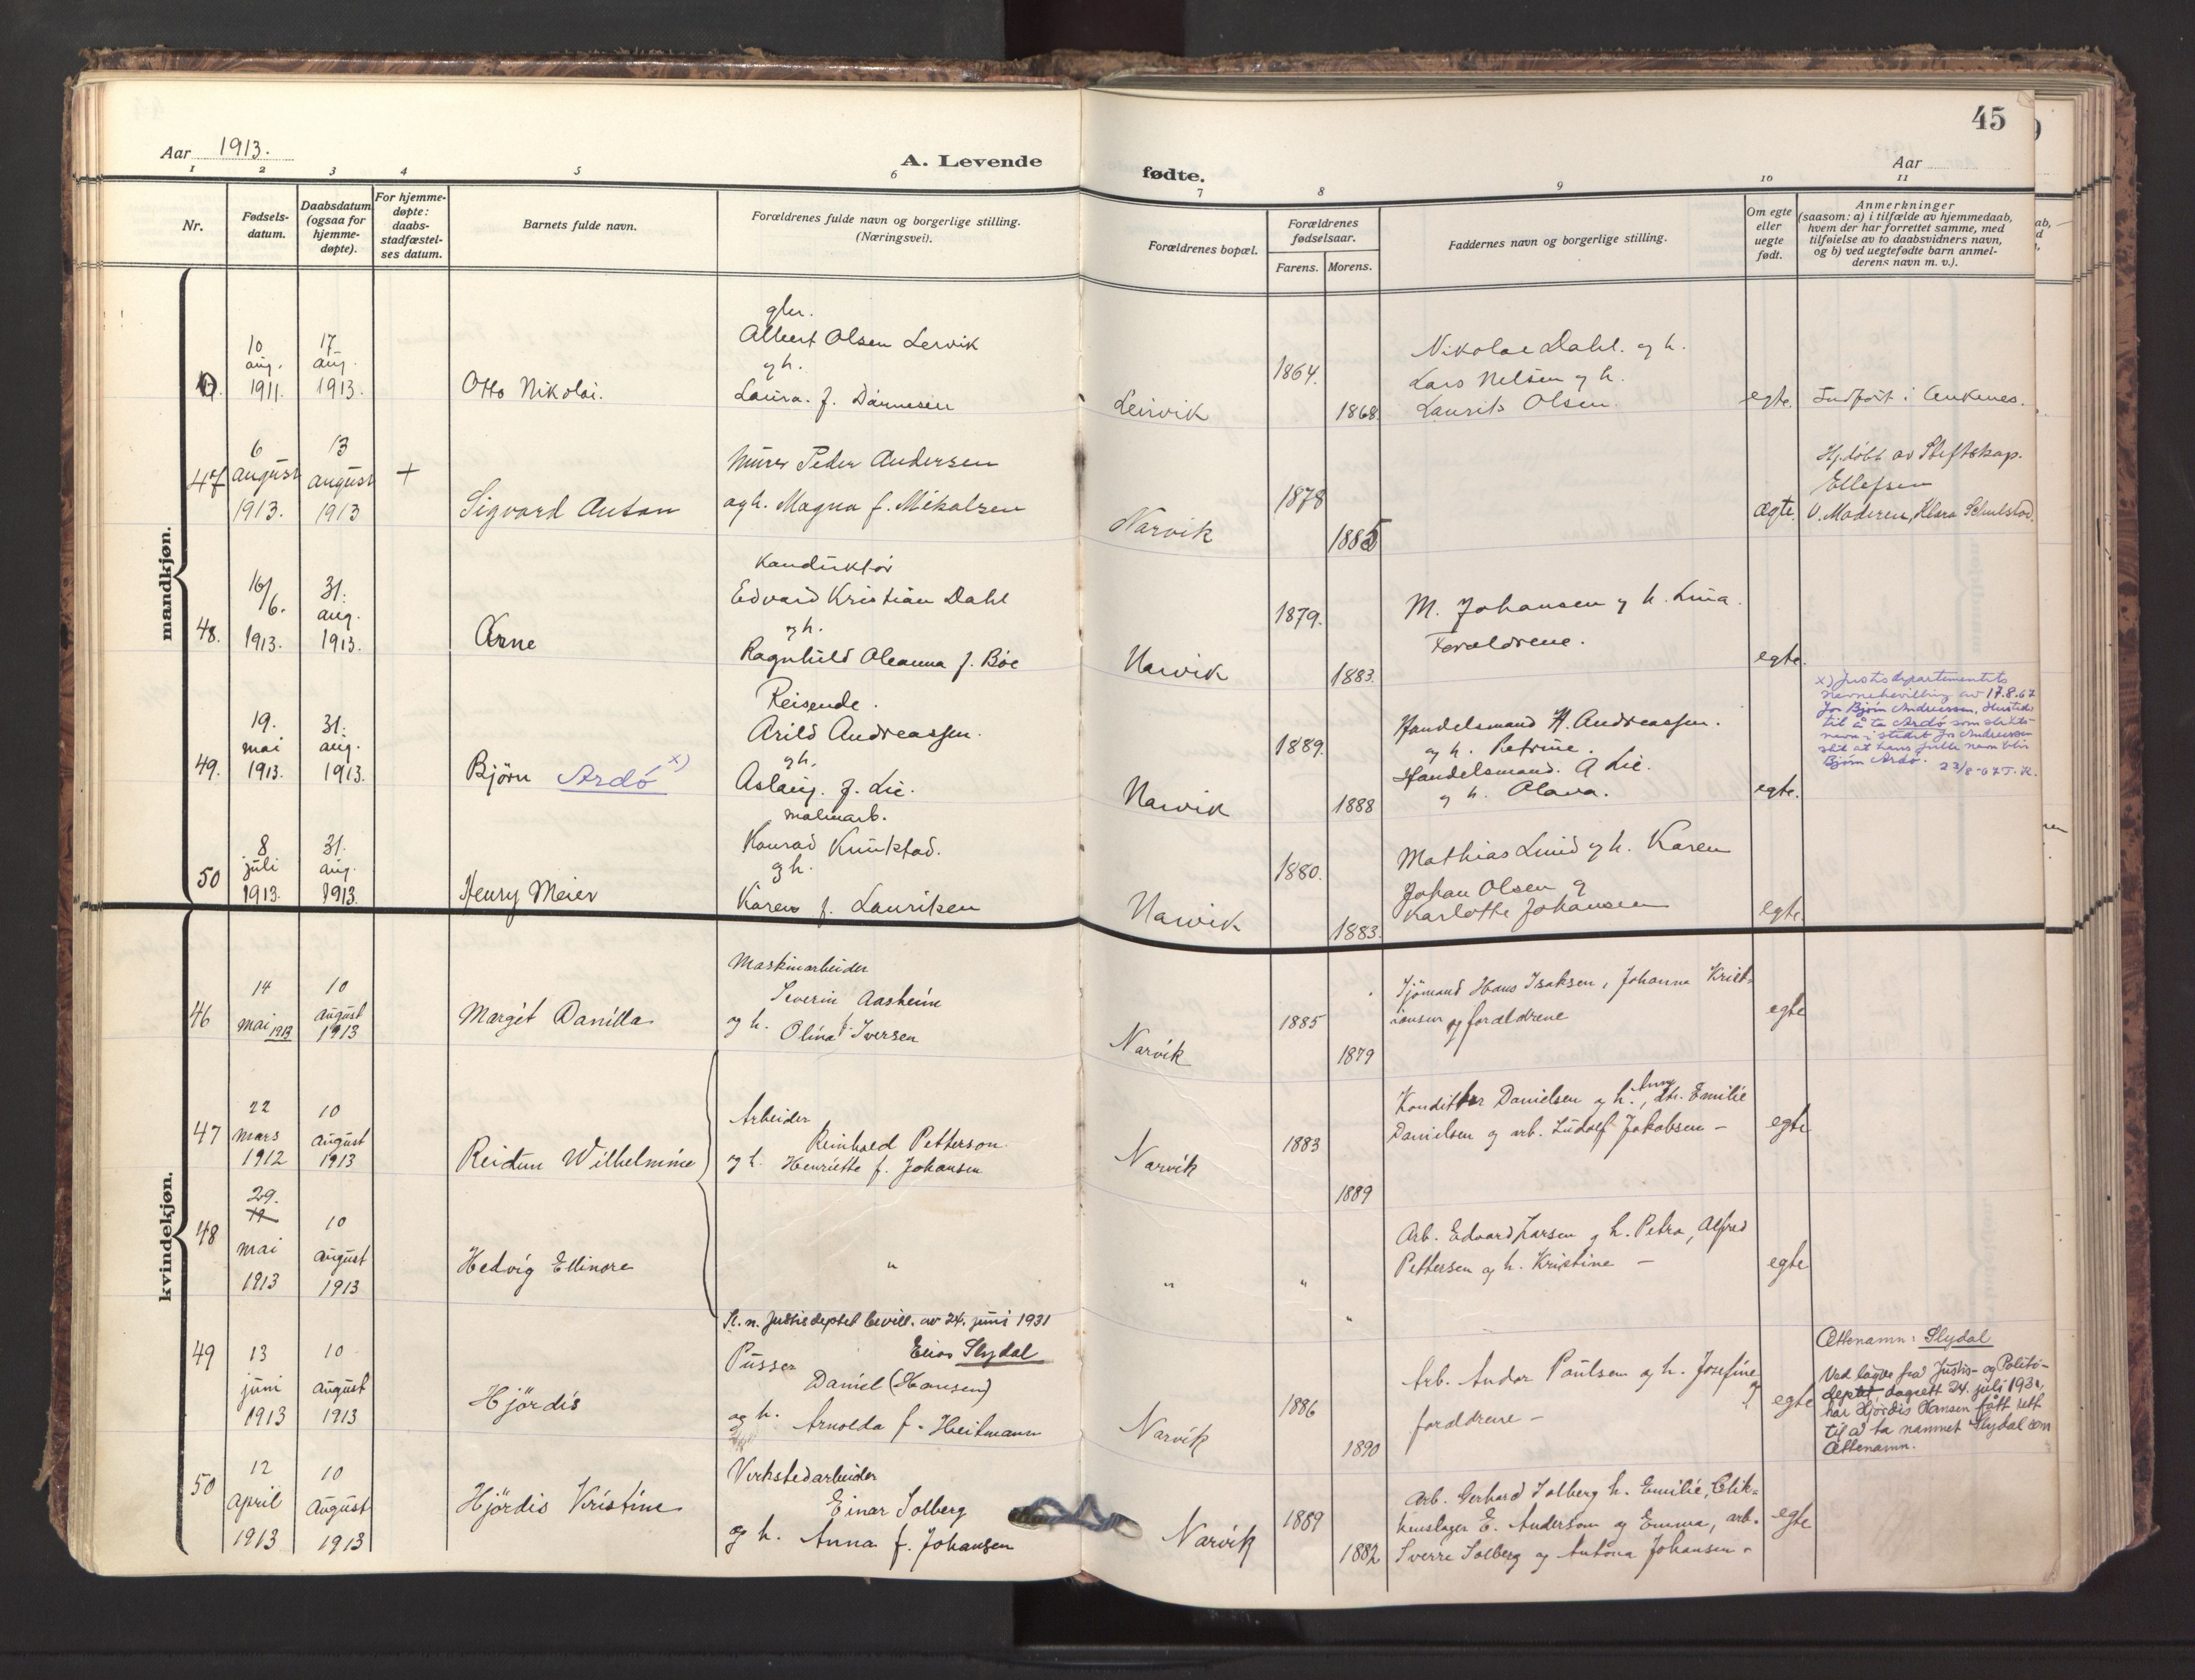 45
Aar 1913.
A. Levende
fødte.
Aar
1 2 3 4 5 6 7 8 9 10 11
Nr.
Fødsels-
datum.
Daabsdatum
(ogsaa for
hjemme-
døpte).
For hjemme-
døpte:
daabs-
stadfæstel-
ses datum.
Barnets fulde navn.
Forældrenes fulde navn og borgerlige stilling.
(Næringsvei).
Forældrenes bopæl.
Forældrenes
fødselsaar.
Farens. Morens.
Faddernes navn og borgerlige stilling.
Om egte
eller
uegte
født.
Anmerkninger
(saasom: a) i tilfælde av hjemmedaab,
hvem der har forrettet samme, med
tilføielse av to daabsvidners navn,
og b) ved uegtefødte barn anmel-
derens navn m. v.).
mandkjøn.
10
aug.
1911.
17
aug.
1913.
Otto Nikolai.
Albert Olsen Lervik
og h.
Laura. f.
Leirvik
1864.
1868.
Nikolai Dahl. og h.
Lars Nelsen og h.
Laurits Olsen.
egte.
Indført i Ankenes.
47
6
august
1913.
13
august
1913
+
Sigvard Anton
Murer Peder Andersen
og h. Magna f. Mikalsen
Narvik
1878
1885
ægte.
Hj.døbt av Stiftskap.
Ellefsen
V. Moderen, Klara Schulstad.
48.
16/6.
1913.
31.
aug.
1913.
Arne
Konduktør
Edvard Kristian Dahl
og h.
Ragnhild Oleanna f. Boe
Narvik
1879.
1883.
M. Johansen og h. Lina.
Forældrene.
egte.
49.
19.
mai
1913.
31.
aug.
1913.
Björn Ardó x)
Reisende.
Arild Andreassen.
og h.
Aslaug. f. Lie.
Narvik
1889.
1888
Handelsmand H. Andreassen.
og h. Petrine.
Handelsmand. A Lie.
og h. Olava.
egte.
x) Justisdepartementets
navnebevilling av 17.8.67
for Bjørn Andreassen,
til å ta Ardó som slekts-
navn i stedet for Andreassen
slik at hans fulle navn blir
Bjørn Ardó. 23/8-67 T.K.
50
8
juli
1913.
31.
aug.
1913.
Henry Meier
malmarb.
Konrad
og h.
Karen f. Lauritsen
Narvik
1880.
1883.
Mathias Lund og h. Karen
Johan Olsen og
Karlotte Johansen
egte
kvindekjøn.
46
14
mai 1913
10
august
1913
Margit Danilla
Maskinarbeider
Severin Aasheim
og h. Olina f. Iversen
Narvik
1885
1879
Sjömand Hans Isaksen, Johanna Krist-
iansen og forældrene
egte
47
22
mars
1912
10
august
1913
Reidun Wilhelmine
Arbeider
Reinhold Petterson
og h. Henriette f. Johansen
Narvik
1883
1889
Konditter Danielsen og h. Anna, Emilie
Danielsen og arb. Ludolf Jakobsen -
egte
48
29.
mai
1913
10
august
1913
Hedvig Ellinore
"
"
"
"
Arb. Edvard Larsen og h. Petra, Alfred
Pettersen og h. Kristine -
egte
49
13
juni
1913
10
august
1913
Hjördis
Sl. n. Justisdeptet bevill. av 24. juni 1931
Pusser Elias Slydal
Daniel (Hansen)
og h. Arnolda f. Heitmann
Narvik
1886
1890
Arb. Andor Paulsen og h. Josefine og
forældrene -
egte
Ættenamn: Slydal
Ved løyve fra Justis- og Politi-
deptet dagsett 24. juli 1931,
har Hjørdis Hansen fått rett
til å ta namnet Slydal som
Ættenamn.
50
12
april
1913
10
august
1913
Hjördis Kristine
Verkstedarbeider
Einar Solberg
og h. Anna f. Johansen
Narvik
1889
1882
Arb. Gerhard Solberg h. Emilie, Blik-
kenslager E. Anderson og Emma, arb.
Sverre Solberg og Antona Johansen -
egte